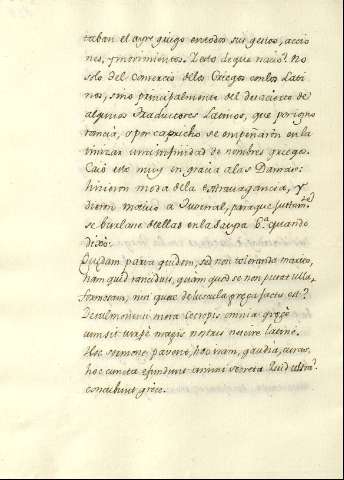 taban el ayre griego en todos sus gestos, accio
nes, y movimientos. Y esto de que nació? No
solo del Comercio de los Griegos con los Lati
nos, sino principalmente del desacierto de
algunos Traductores Latinos, que por igno
rancia, o por capricho se empeñaron en la
tinizar una infinidad de nombres griegos.
Cayó esto muy en gracia a las Damas:
hicieron moda de la extravagancia, y
dieron motivo a Juvenal, para que justam.te
se burlase de ellas en la Satyra 6.a quando
dixo:
Quædam parva quidem, sed non toleranda maritis,
nam quid rancidius, quam quod se non putat ulla,
formosam, nisi quae de Tuscula græca facta est?
De Sulmonensi mera Cecropis omnia græce
cum sit turpe magis nostris nescire latine.
Hoc sermone pavent, hoc iram, gaudia, curas,
hoc cuncta effundunt animi secreta. Quid ultra?
concubunt græce.